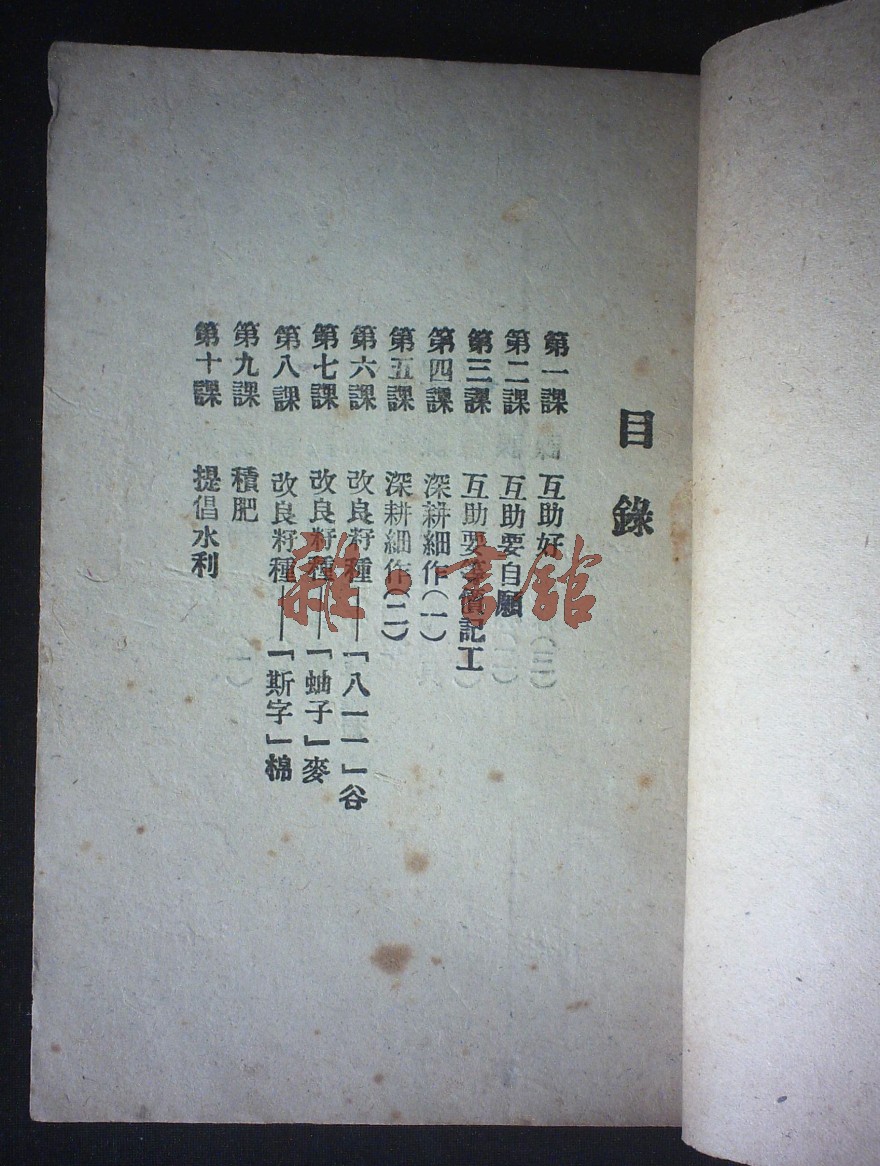 目錄
第一課 互助好
第二課 互助要自願
第三課 互助要等價記工
第四課 深耕細作(一)
第五課 深耕細作(二)
第六課 改良籽種——「八一一」谷
第七課 改良籽種——「蚰子」麥
第八課 改良籽種——「斯字」棉
第九課 積肥
第十課 提倡水利
雜·書館